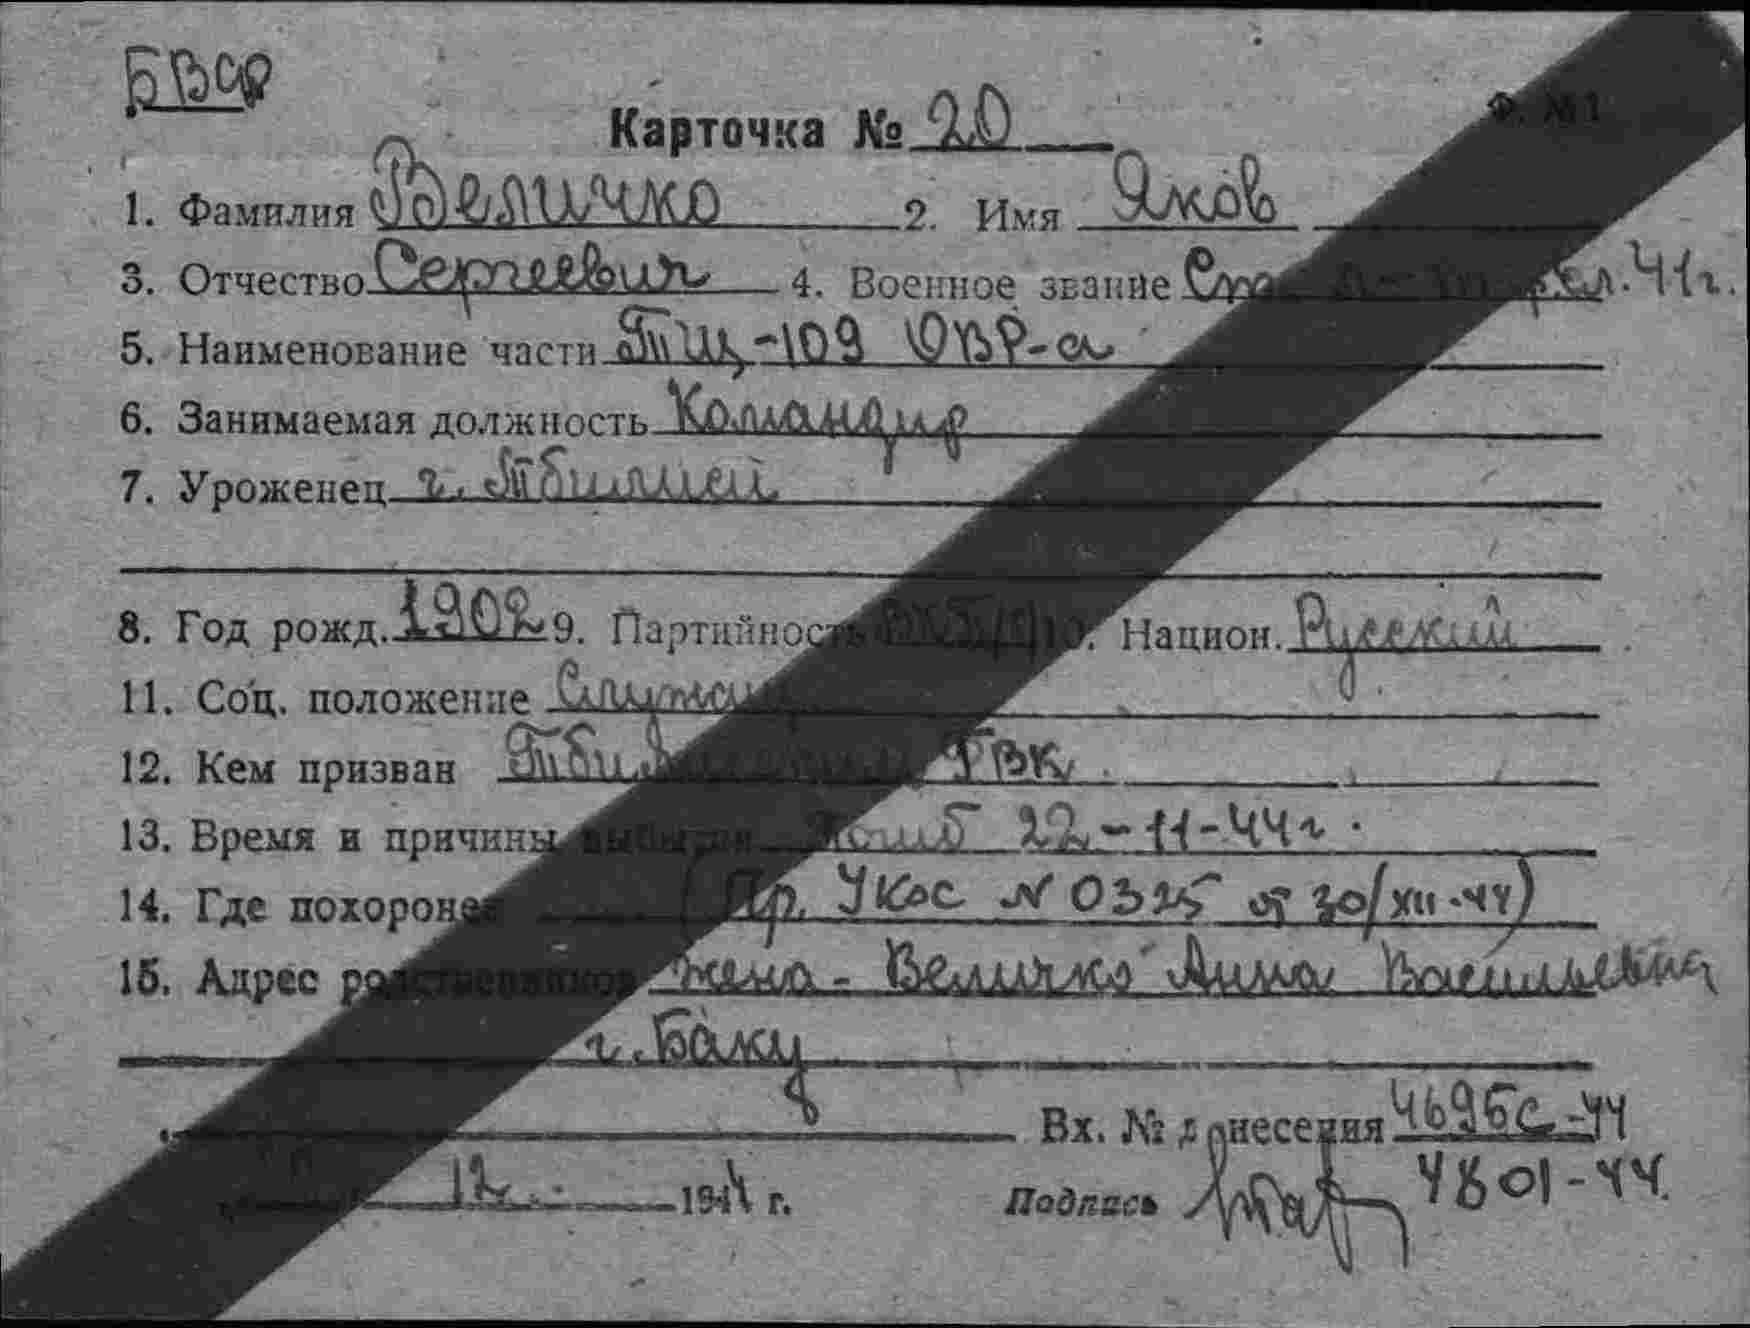 БВФ
Карточка № 20
Ф. №1
1. Фамилия Величко 2. Имя Яков
3. Отчество Сергеевич 4. Военное звание Ст. сл. 41г.
5. Наименование части ТЩ-109 ОВР-а
6. Занимаемая должность Командир
7. Уроженец г. Тбилиси
8. Год рожд. 1902 9. Партийность 10. Национ. Русский
11. Соц. положение
12. Кем призван ГВК
13. Время и причины выбытия Погиб 22-11-44г.
14. Где похоронен (Пр. УКОС N 0325 от 30/XII-44)
15. Адрес родственников жена - Величко Анна Васильевна
г. Баку
Вх. № донесения 4695с-44
12 1944 г. Подпись 4801-44.